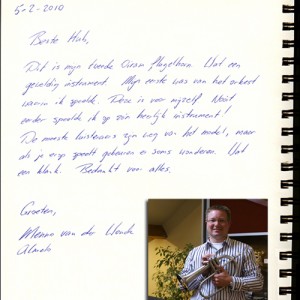 5-2-2010
Beste Hub,
Dit is mijn tweede Oiram flugelhorn. Wat een
geweldig instrument. Mijn eerste was van het orkest
waarin ik speelde. Deze is voor mijzelf. Nooit
eerder speelde ik op zo'n heerlijk instrument!
De meeste luisteraars zijn weg van het model, maar
als je erop speelt gebeuren er soms wonderen. Wat
een klank. Bedankt voor alles.
Groeten,
Menno van der
Almelo